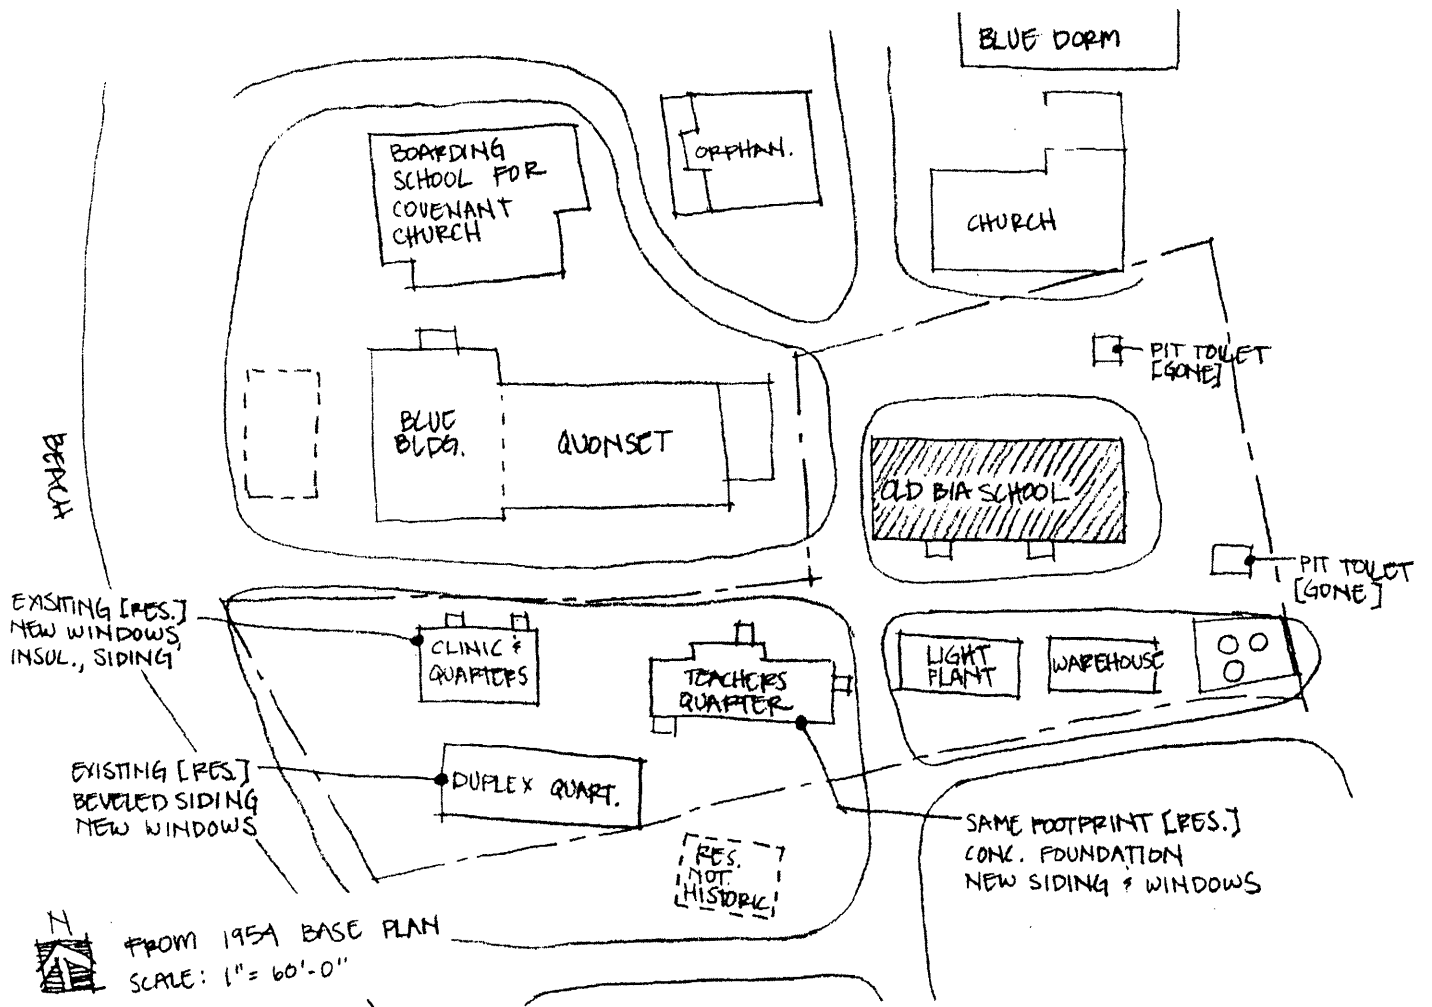 BLUE DORM
BOARDING
SCHOOL FOR
COVENANT
CHURCH
ORPHAN.
CHURCH
PIT TOILET
[GONE]
BLUE
BLDG.
QUONSET
OLD BIA SCHOOL
BEACH
PIT TOILET
[GONE]
EXISITING [RES.]
NEW WINDOWS,
INSUL., SIDING
CLINIC &
QUARTERS
TEACHERS
QUARTER
LIGHT
PLANT
WAREHOUSE
EXISTING [RES.]
BEVELED SIDING
NEW WINDOWS
DUPLEX QUART.
SAME FOOTPRINT [RES.]
CONC. FOUNDATION
NEW SIDING & WINDOWS
RES.
NOT
HISTORIC
N
FROM 1954 BASE PLAN
SCALE: 1" = 60'-0"